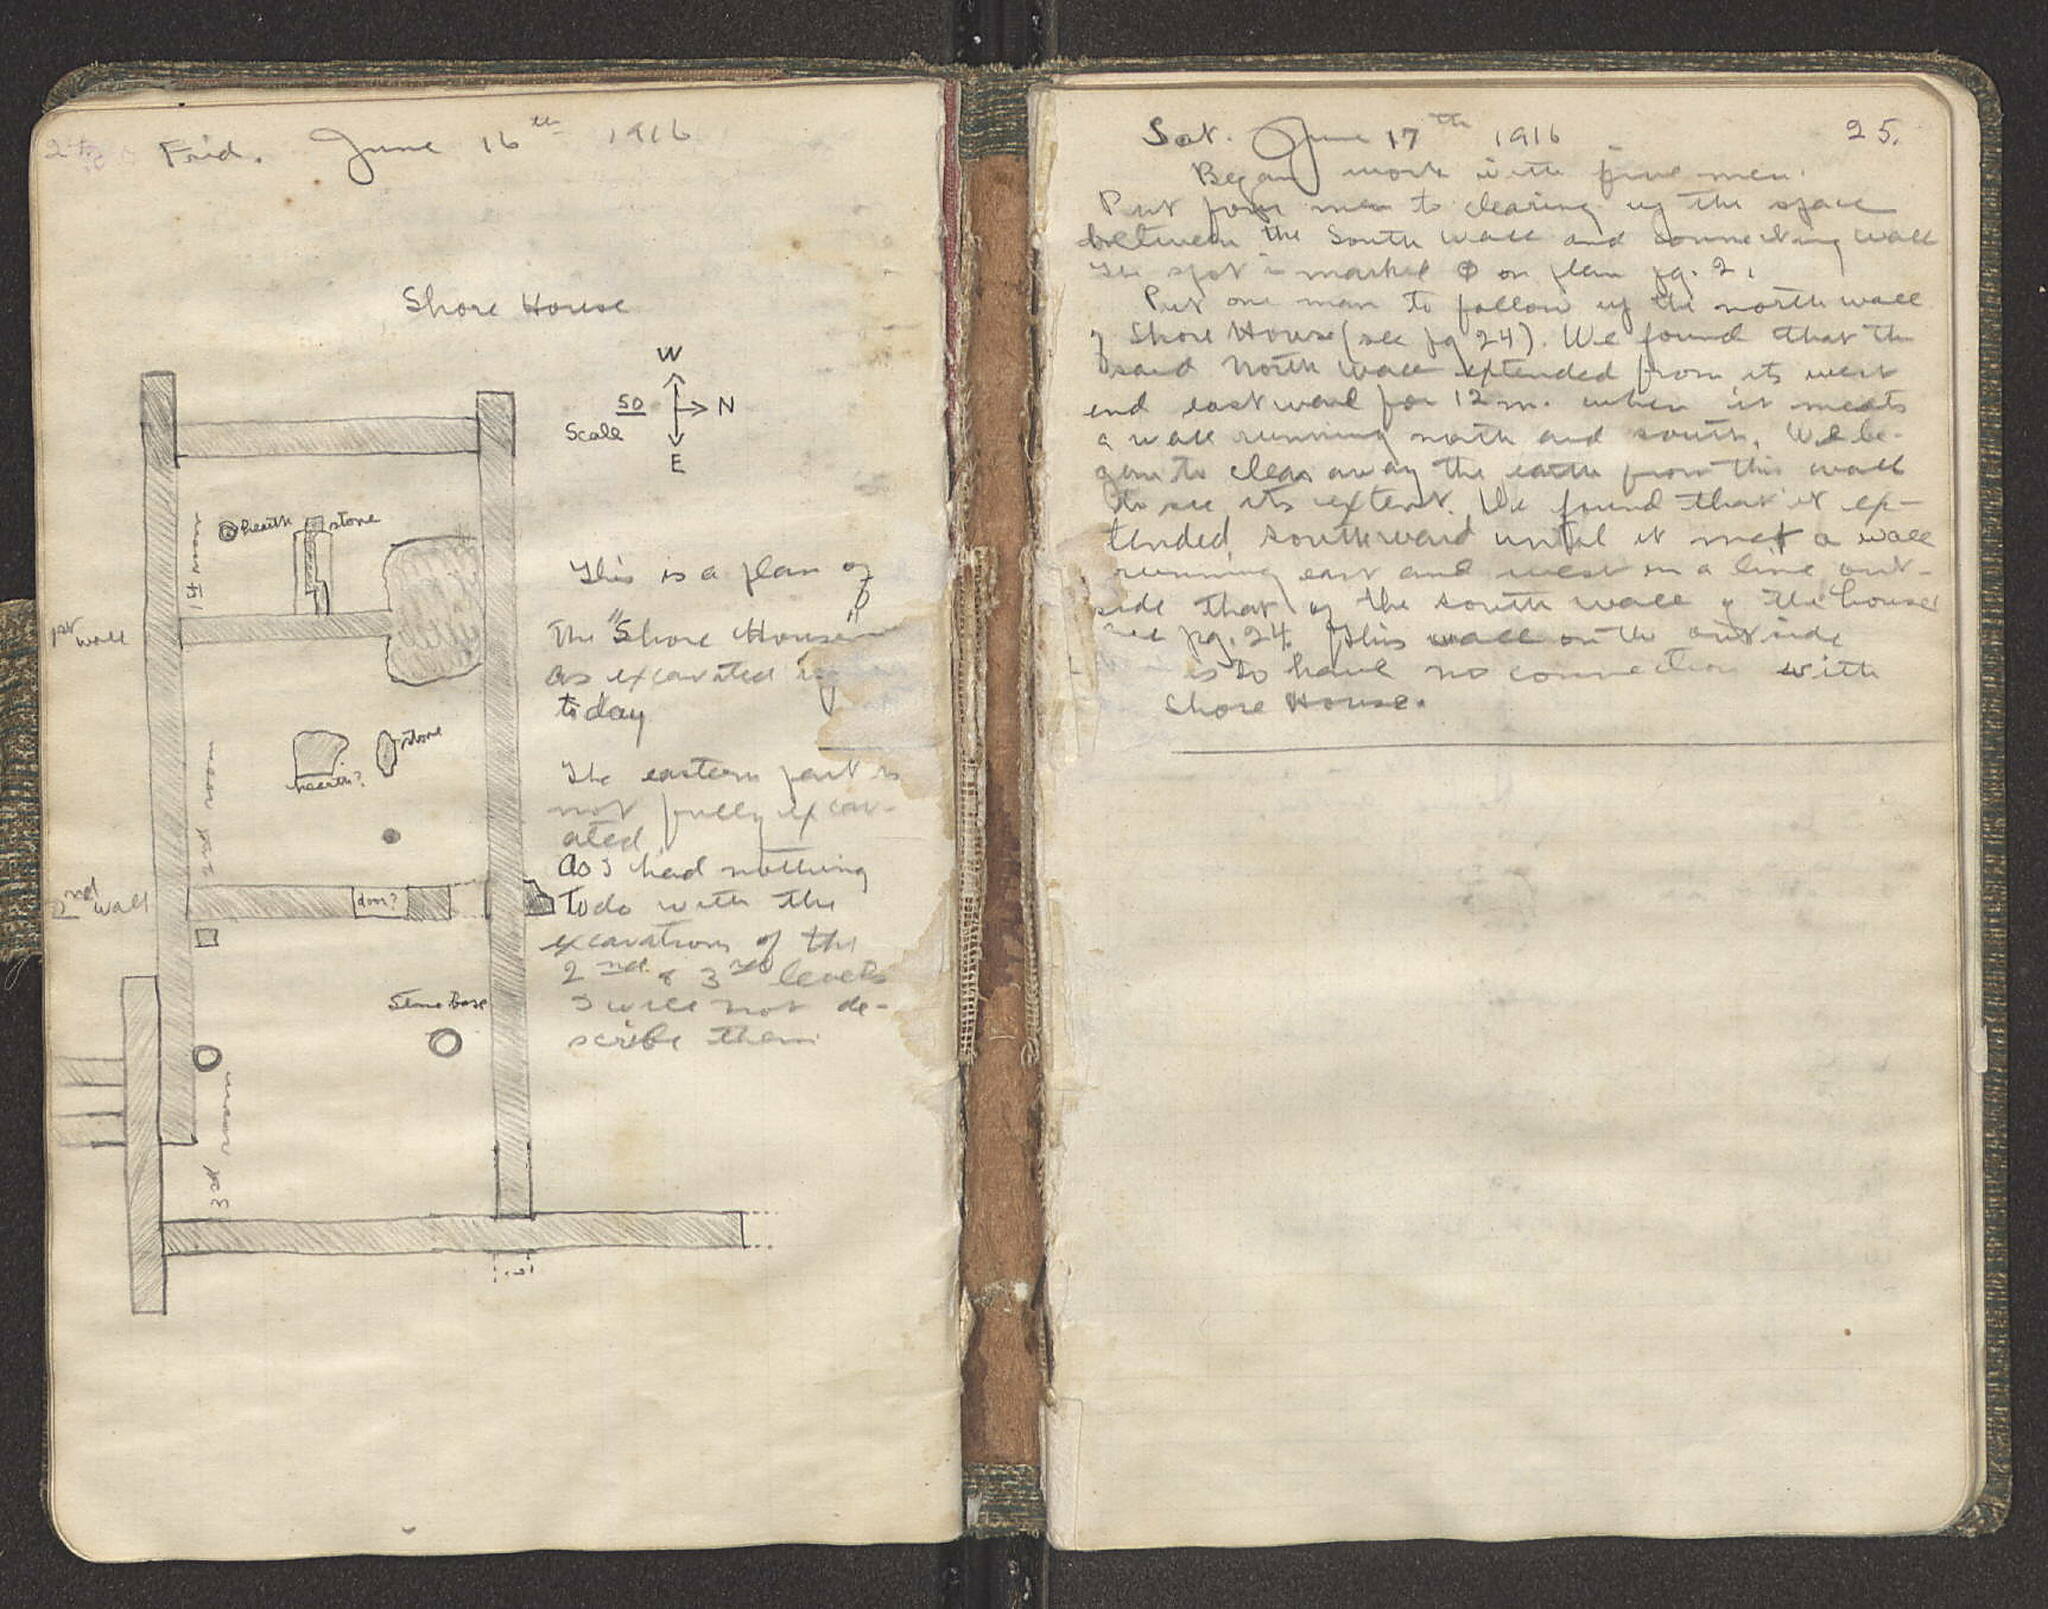 Frid. June 16th 1916
Shore House
W
50
Scale
N
E
hearth
stone
1st room
1st wall
This is a plan of
the "Shore House"
as excavated
today
stone
hearth?
2nd room
The eastern part is
not fully excav-
ated
As I had nothing
2nd wall
door?
To do with the
excavations of the
2nd & 3rd levels
I will not de-
scribe them
Stone Base
3rd room
Sat. June 17th 1916
25.
Began work with five men.
Put four men to clearing up the space
between the South wall and connecting wall
The spot is marked ⌽ on plan pg. 21
Put one man to follow up the north wall
of Shore House (see pg 24). We found that the
said North wall extended from its west
end eastward for 12 m. when it meets
a wall running north and south. We be-
gan to clear away the earth from this wall
to see its extent. We found that it ex-
tended southward until it met a wall
running east and west in a line out-
side that of the south wall of the house
see pg. 24. This wall on the outside
is to have no connection with
Shore House.